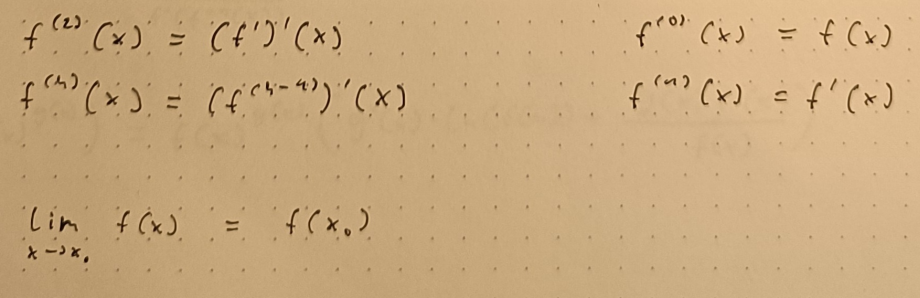 f⁽²⁾(x) = (f')'(x) f⁽⁰⁾(x) = f(x)
f⁽ⁿ⁾(x) = (f⁽ⁿ⁻¹⁾)'(x) f⁽¹⁾(x) = f'(x)
lim f(x) = f(x₀)
x→x₀